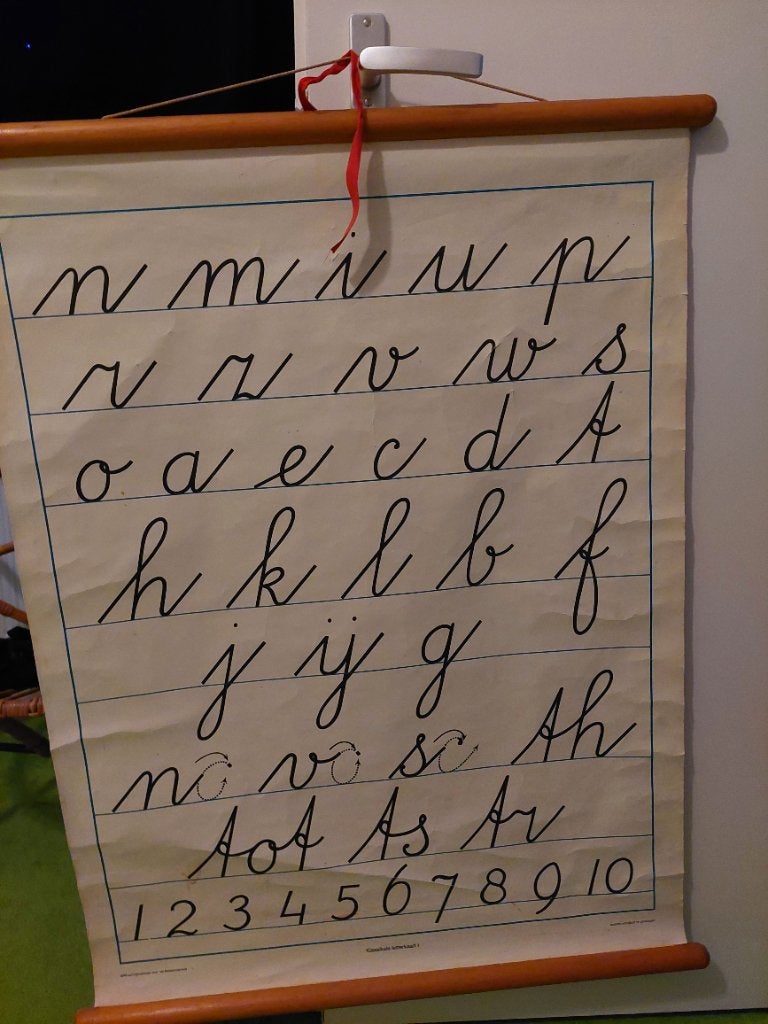 n m i u p
r z v w s
o a e c d t
h k l b f
j ij g
no vo sc th
tot ts tr
1 2 3 4 5 6 7 8 9 10